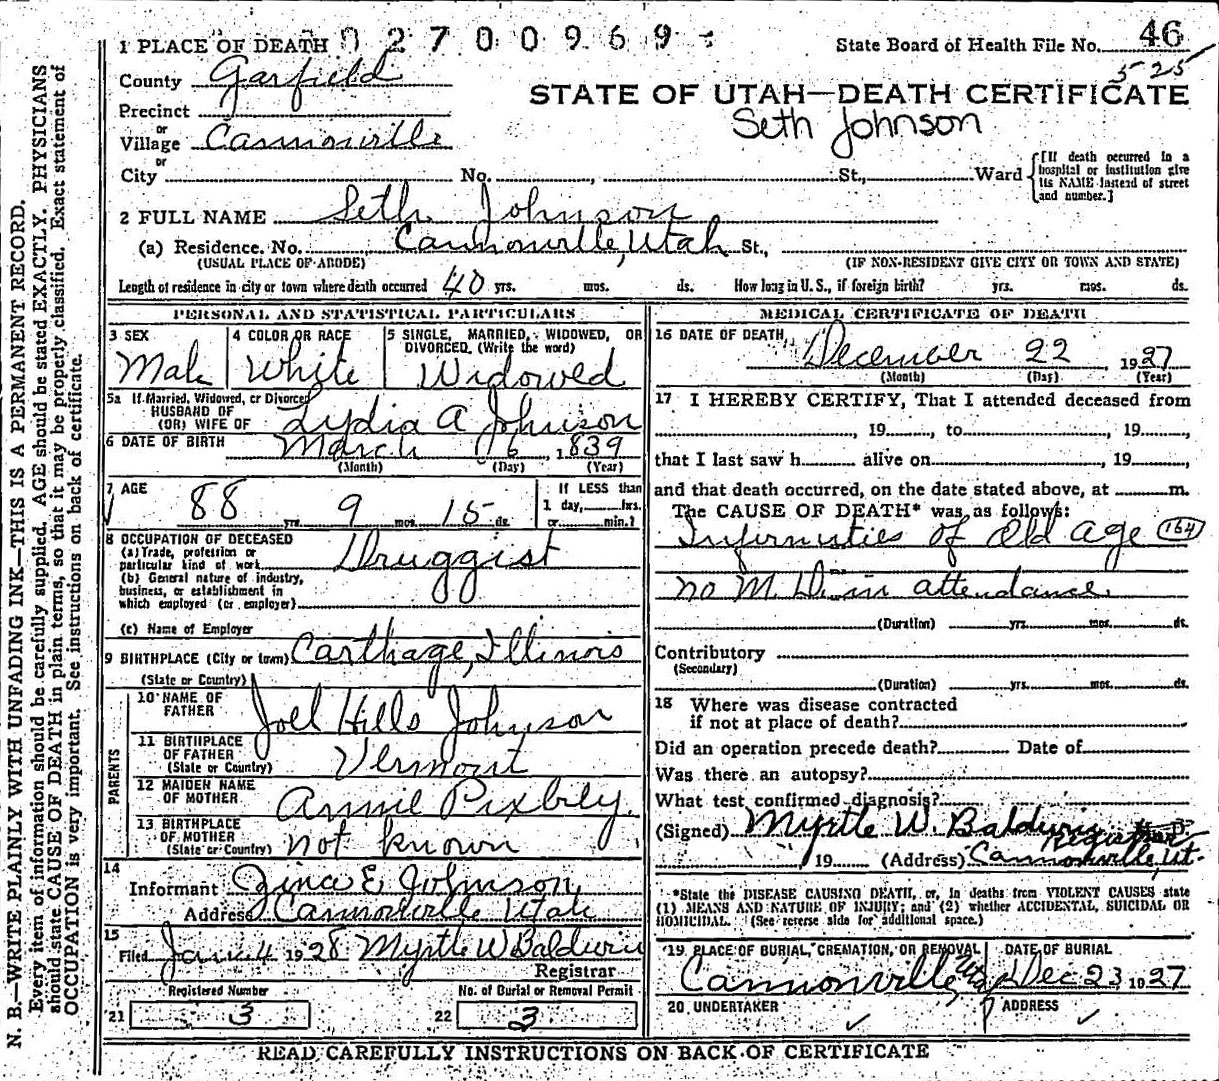 1 PLACE OF DEATH 02700969
State Board of Health File No. 46
525
County Garfield
STATE OF UTAH—DEATH CERTIFICATE
Precinct
Seth Johnson
or
Village Cannonville
or
City No. , St., Ward
[If death occurred in a hospital or institution give its NAME instead of street and number.]
2 FULL NAME Seth Johnson
(a) Residence. No. Cannonville, Utah St.,
(USUAL PLACE OF ABODE) (IF NON-RESIDENT GIVE CITY OR TOWN AND STATE)
Length of residence in city or town where death occurred 40 yrs. mos. ds. How long in U. S., if foreign birth? yrs. mos. ds.
PERSONAL AND STATISTICAL PARTICULARS
3 SEX Male
4 COLOR OR RACE White
5 SINGLE, MARRIED, WIDOWED, OR DIVORCED (Write the word) Widowed
5a If Married, Widowed, or Divorced
HUSBAND OF
(OR) WIFE OF Lydia A Johnson
6 DATE OF BIRTH March 6, 1839
(Month) (Day) (Year)
7 AGE 88 yrs. 9 mos. 15 ds.
If LESS than
1 day, hrs.
or min.?
8 OCCUPATION OF DECEASED
(a) Trade, profession or
particular kind of work Druggist
(b) General nature of industry,
business, or establishment in
which employed (or employer)
(c) Name of Employer
9 BIRTHPLACE (City or town) Carthage, Illinois
(State or Country)
PARENTS
10 NAME OF
FATHER Joel Hills Johnson
11 BIRTHPLACE
OF FATHER
(State or Country) Vermont
12 MAIDEN NAME
OF MOTHER Annie Pixbley.
13 BIRTHPLACE
OF MOTHER
(State or Country) Not known
14
Informant Zina E Johnson
Address Cannonville Utah
15
Filed Jan. 4 1928 Myrtle W Baldwin
Registrar
Registered Number No. of Burial or Removal Permit
21 3 22 3
MEDICAL CERTIFICATE OF DEATH
16 DATE OF DEATH December 22, 1927
(Month) (Day) (Year)
17 I HEREBY CERTIFY, That I attended deceased from
, 19 , to , 19 ,
that I last saw h alive on , 19 ,
and that death occurred, on the date stated above, at m.
The CAUSE OF DEATH* was as follows:
Infirmities of Old Age 164
no M. D. in attendance.
(Duration) yrs. mos. ds.
Contributory
(Secondary)
(Duration) yrs. mos. ds.
18 Where was disease contracted
if not at place of death?
Did an operation precede death? Date of
Was there an autopsy?
What test confirmed diagnosis?
(Signed) Myrtle W. Baldwin Registrar
, 19 (Address) Cannonville, Ut.
*State the DISEASE CAUSING DEATH, or, in deaths from VIOLENT CAUSES state
(1) MEANS AND NATURE OF INJURY; and (2) whether ACCIDENTAL, SUICIDAL OR
HOMICIDAL. (See reverse side for additional space.)
19 PLACE OF BURIAL, CREMATION, OR REMOVAL DATE OF BURIAL
Cannonville Utah Dec 23 1927
20 UNDERTAKER ADDRESS
READ CAREFULLY INSTRUCTIONS ON BACK OF CERTIFICATE
N. B.—WRITE PLAINLY WITH UNFADING INK—THIS IS A PERMANENT RECORD.
Every item of information should be carefully supplied. AGE should be stated EXACTLY. PHYSICIANS
should state CAUSE OF DEATH in plain terms, so that it may be properly classified. Exact statement of
OCCUPATION is very important. See instructions on back of certificate.